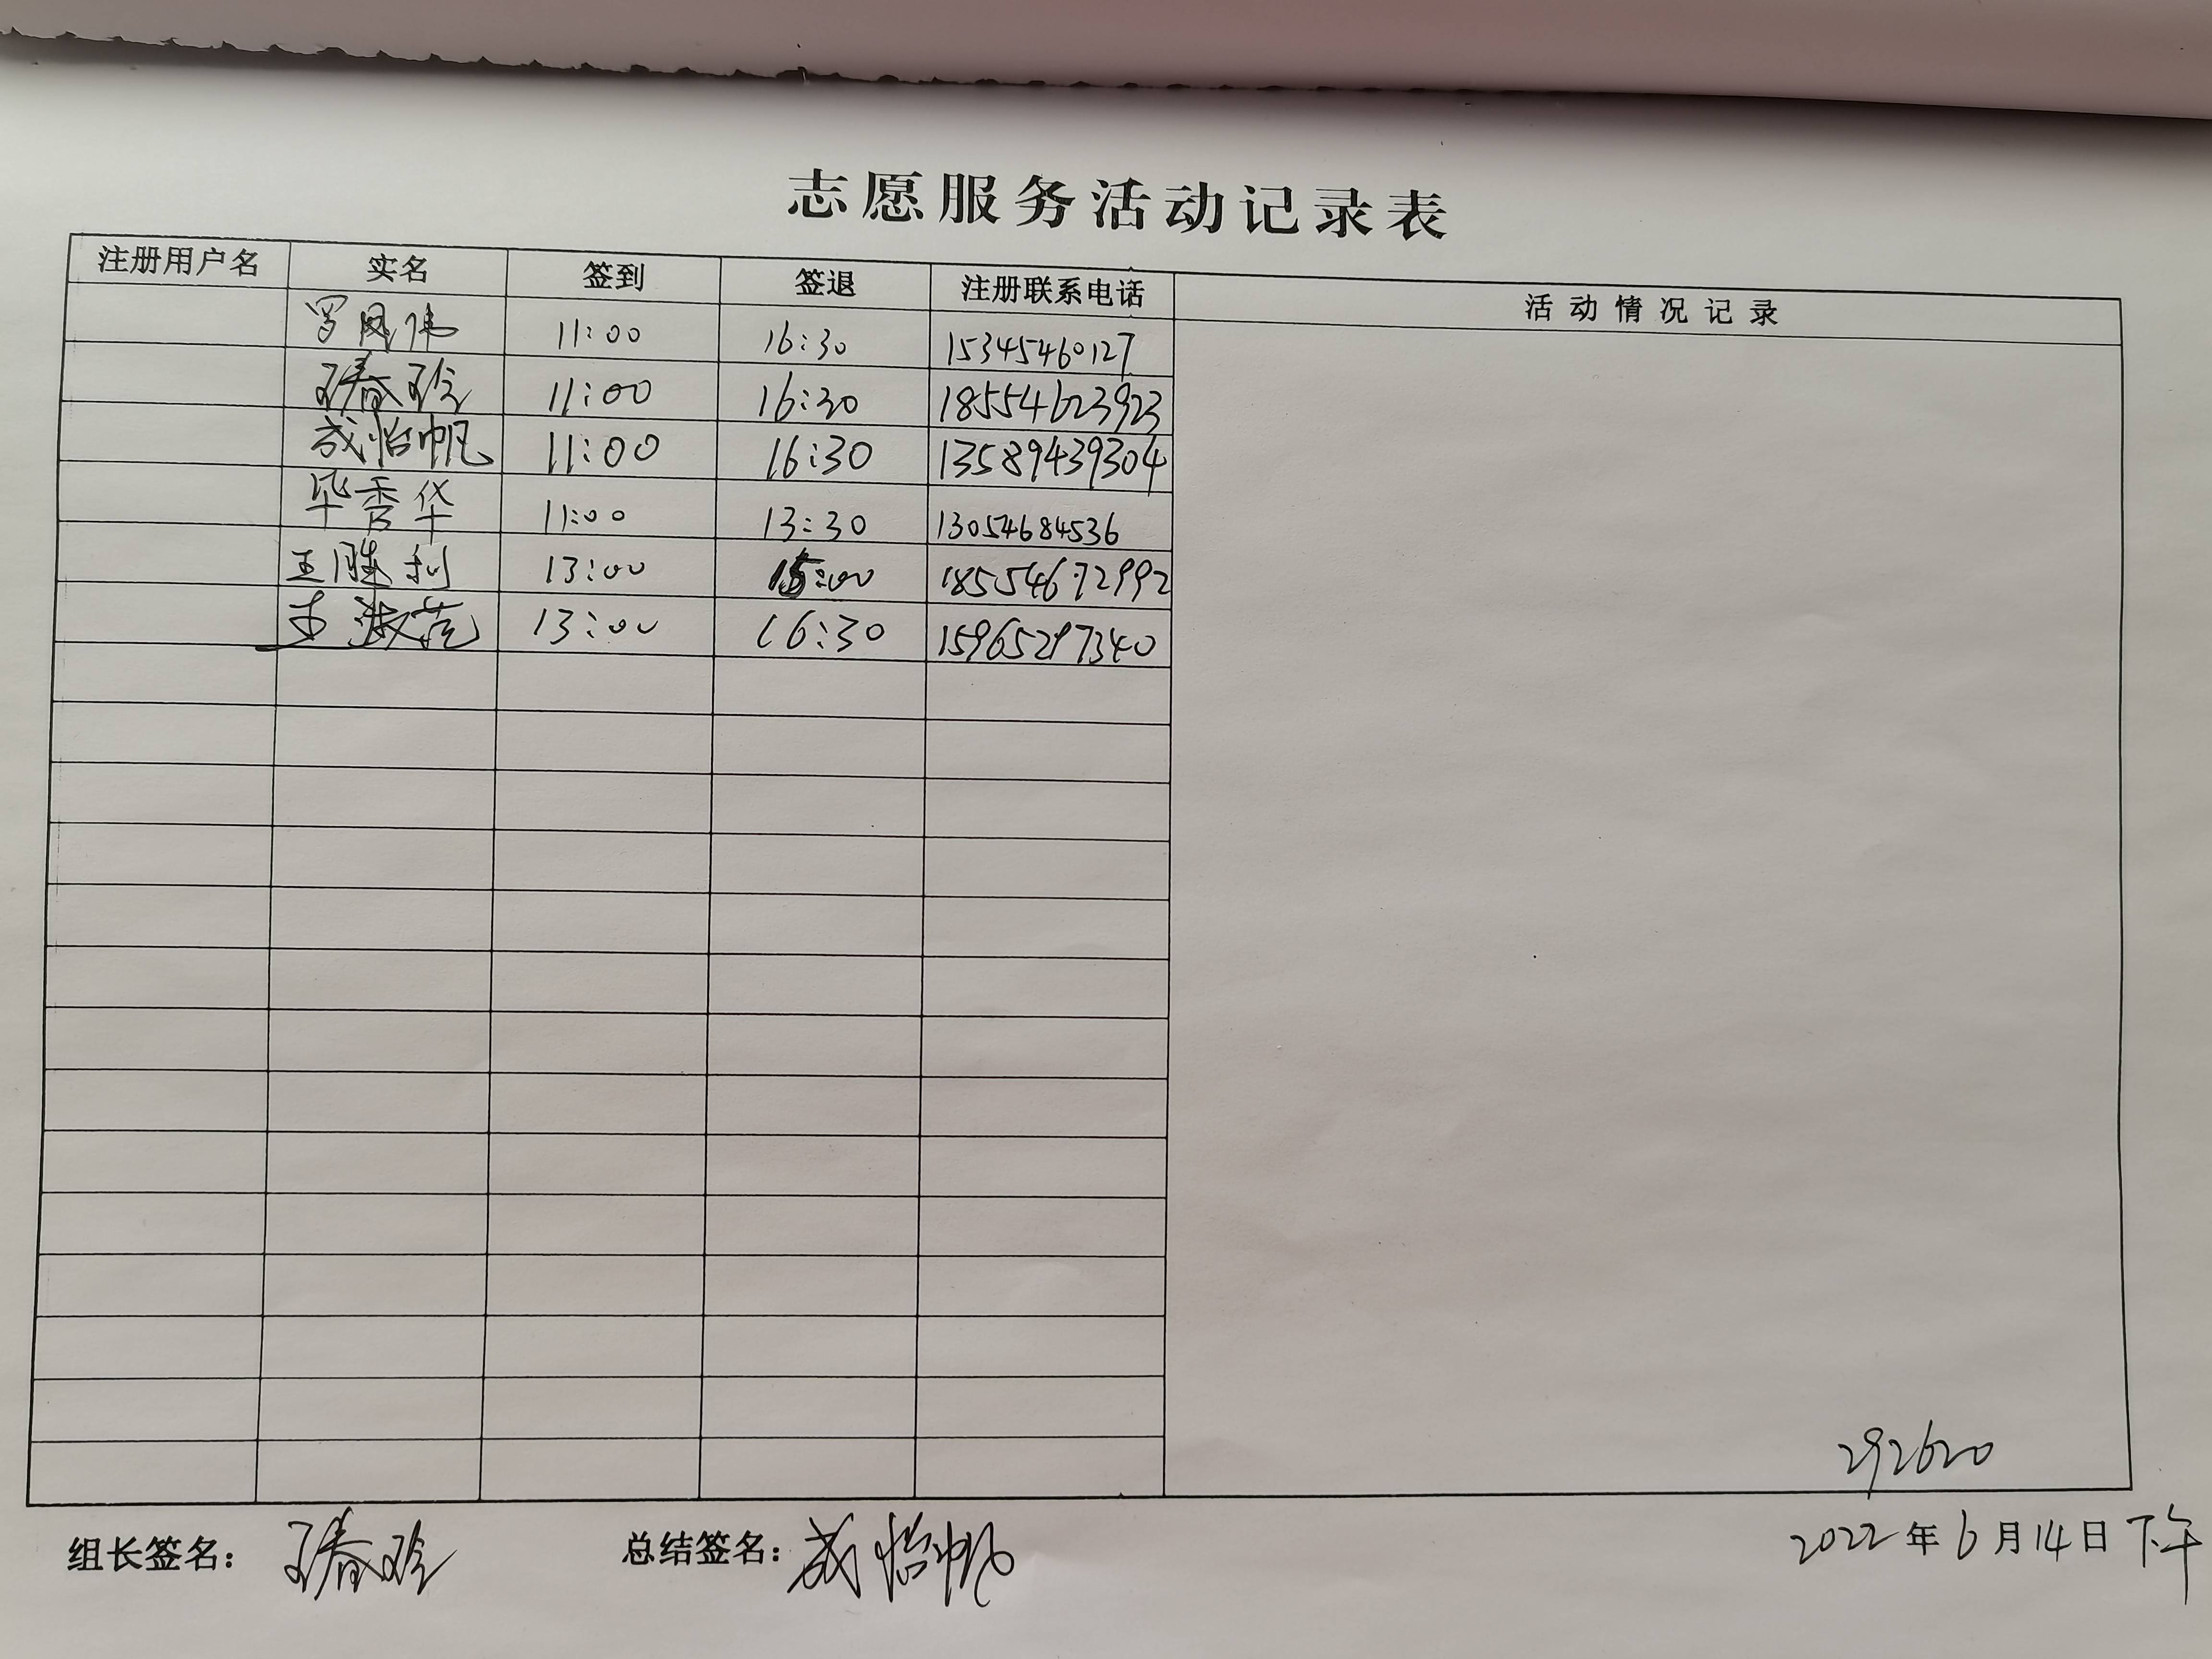 志愿服务活动记录表
注册用户名 实名 签到 签退 注册联系电话 活动情况记录
罗凤伟 11:00 16:30 15345460127
春玲 11:00 16:30 18554623923
成怡帆 11:00 16:30 13589439304
毕秀华 11:00 13:30 13054684536
王胜利 13:00 15:00 18554672992
王淑范 13:00 16:30 15965297340
292620
组长签名: 春玲 总结签名: 成怡帆 2022年6月14日下午